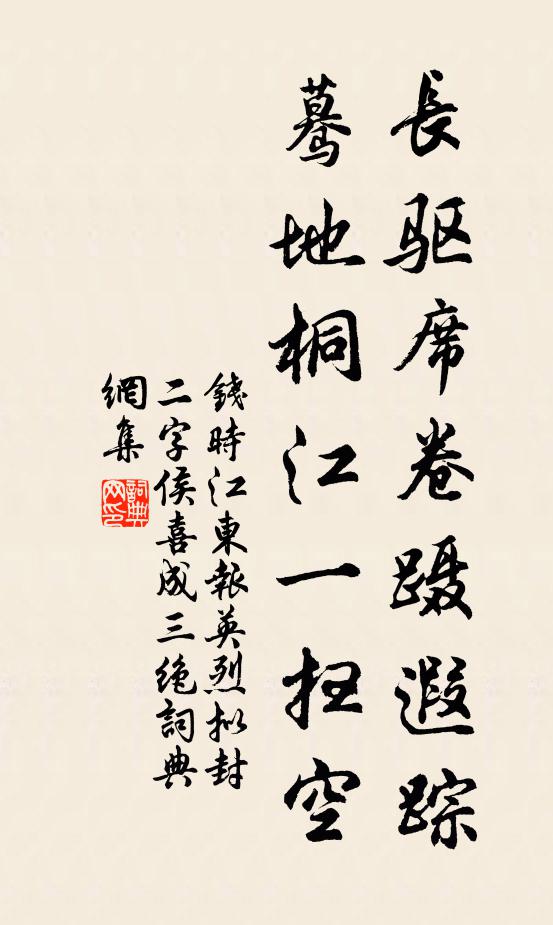 長驱席卷蹑遐踪
蓦地桐江一扫空
錢時江東報英烈拟封
二字侯喜成三绝詞典
網集
詞典網印